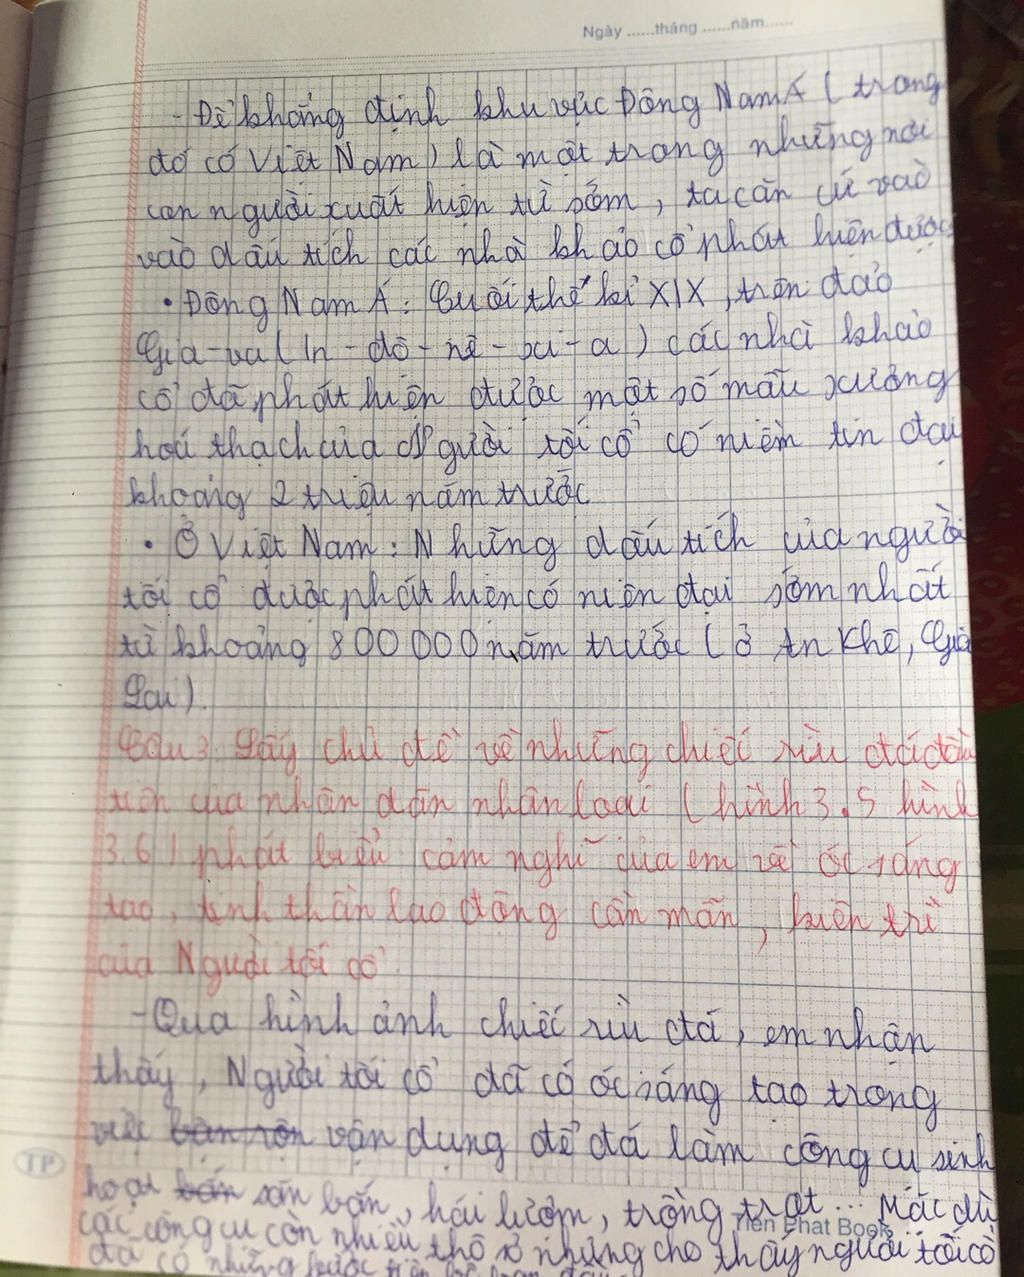 Ngày ......tháng ......năm......
- Để khẳng định khu vực Đông Nam Á ( trong
đó có Việt Nam ) là một trong những nơi
con người xuất hiện từ sớm , ta căn cứ vào
vào dấu tích các nhà khảo cổ phát hiện được
• Đông Nam Á : Cuối thế kỉ XIX , trên đảo
Gia-va ( In - đô - nê - xi - a ) các nhà khảo
cổ đã phát hiện được một số mẩu xương
hoá thạch của Người tối cổ có niêm tin đại
khoảng 2 triệu năm trước
• Ở Việt Nam : Những dấu tích của người
tối cổ được phát hiện có niên đại sớm nhất
từ khoảng 800 000 năm trước ( ở An Khê , Gia
Lai ) .
Câu 3 Lấy chủ đề về những chiếc rìu đá đầu
tiên của nhân dân nhân loại ( hình 3.5 hình
3.6 ) phát biểu cảm nghĩ của em về óc sáng
tạo , tinh thần lao động cần mẫn , kiên trì
của Người tối cổ
- Qua hình ảnh chiếc rìu đá , em nhận
thấy , Người tối cổ đã có óc sáng tạo trong
việc vận dụng để đá làm công cụ sinh
hoạt săn bắn , hái lượm , trồng trọt ... Mặc dù
các công cụ còn nhiều thô sơ nhưng cho thấy người tối cổ
đã có những bước
TP
Tien Phat Book